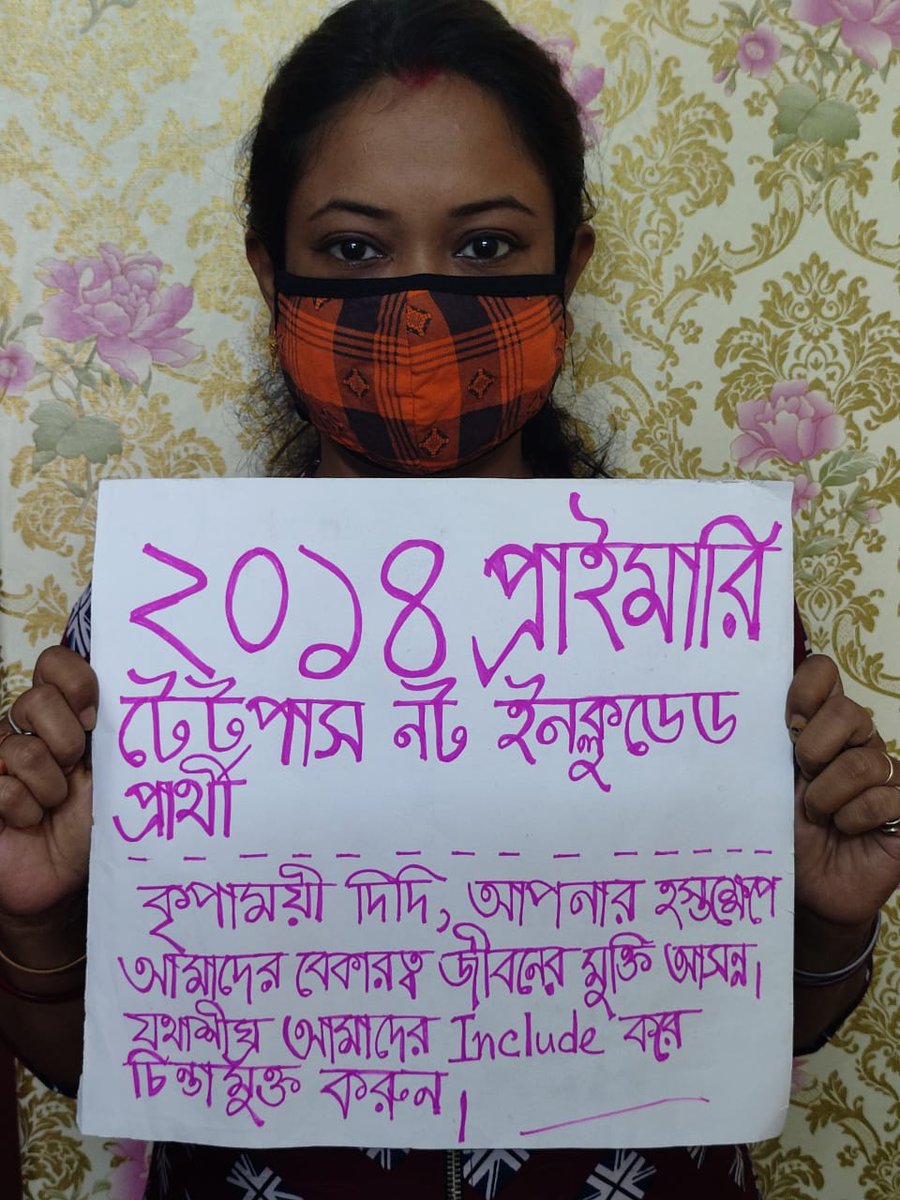 ২০১৪ প্রাইমারি
টেটপাস নট ইনক্লুডেড
প্রার্থী
কৃপাময়ী দিদি, আপনার হস্তক্ষেপে
আমাদের বেকারত্ব জীবনের মুক্তি আসন্ন।
যথাশীঘ্র আমাদের Include করে
চিন্তামুক্ত করুন।